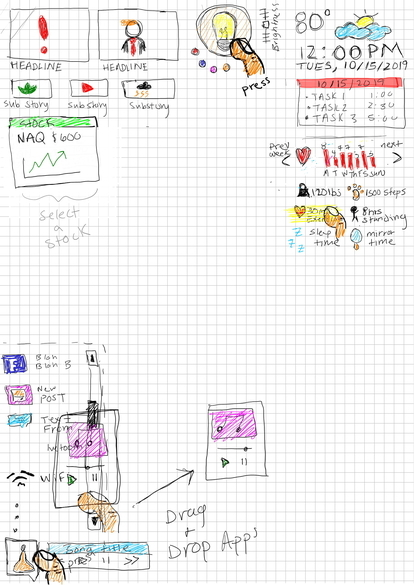 HEADLINE
HEADLINE
Sub Story
Sub story
Substory
STOCK
NAQ $600
select
a
stock
Brightness
press
80°
12:00PM
TUES, 10/15/2019
10/15/2019
• TASK 1 1:00
• TASK 2 2:30
• TASK 3 5:00
prev
week
next
120lbs
1500 steps
8hrs
standing
sleep
time
mirror
time
Blah
Blah B
New
POST
Text
From
WiFi
Drag
+
Drop Apps
Song title